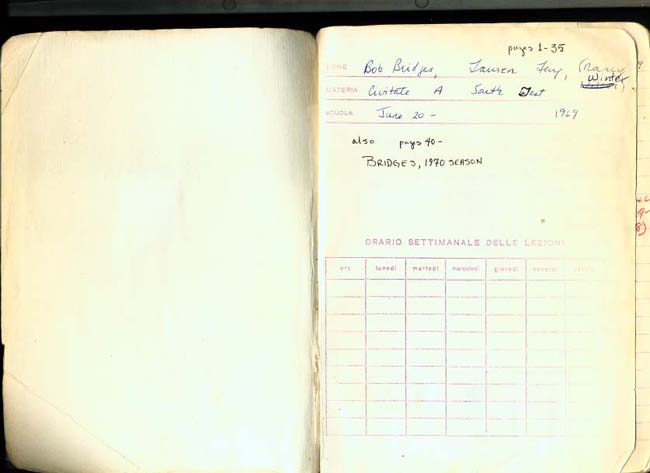 pages 1-35
NOME Bob Bridges, Lauren Fay, (Nancy
Winter
MATERIA Civitate A South Test
SCUOLA June 20 - 1969
also pages 40-
BRIDGES, 1970 SEASON
ORARIO SETTIMANALE DELLE LEZIONI
ore lunedì martedì mercoledì giovedì venerdì sabato
8)